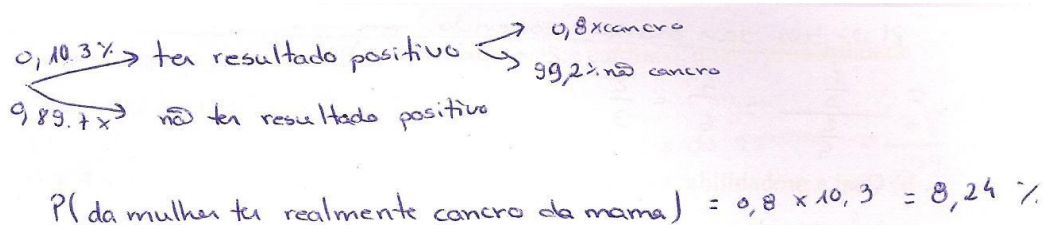 0,10.3% ter resultado positivo 0,8% cancro
99,2% não cancro
989.7% não ter resultado positivo
P(da mulher ter realmente cancro da mama) = 0,8 x 10,3 = 8,24 %